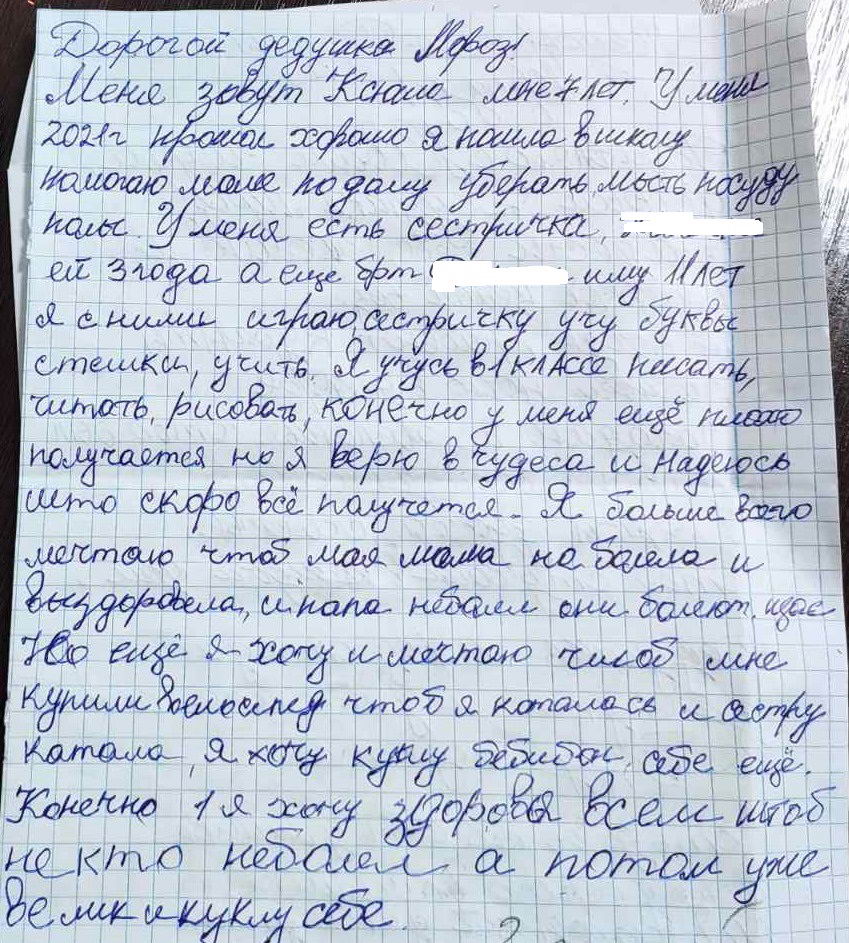 Дорогой дедушка Мороз!
Меня зовут Ксюша мне 7 лет. У меня
2021г прошол хорошо я пошла в школу
помогаю маме по даму уберать, мысть посуду
полы. У меня есть сестричка,
ей 3 года а еще брт иму 11 лет
я с ними играю, сестричку учу буквы
стешки, учить. Я учусь в 1 классе писать,
читать, рисовать, конечно у меня ещё плохо
получается но я верю в чудеса и надеюсь
што скоро всё получется. Я больше всего
мечтаю чтоб мая мама не болела и
выздоровела, и папа неболел они болеют щас
Но ещё я хочу и мечтаю чтоб мне
купили велосипед чтоб я каталась и сестру
катала, я хочу куклу бебибон себе ещё.
Конечно 1 я хочу здоровья всем штоб
не кто неболел а потом уже
велик и куклу себе.